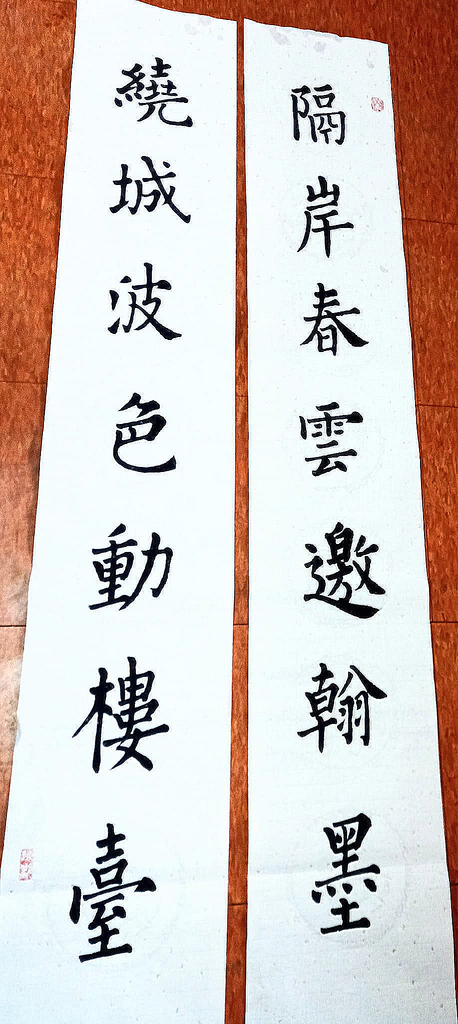 隔岸春雲邀翰墨
繞城波色動樓臺